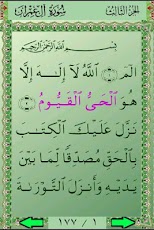 الجزء الثالث
سورة آل عمران
بِسْمِ اللَّهِ الرَّحْمَنِ الرَّحِيمِ
الٓمٓ ۝١ ٱللَّهُ لَآ إِلَٰهَ إِلَّا
هُوَ ٱلْحَىُّ ٱلْقَيُّومُ ۝٢
نَزَّلَ عَلَيْكَ ٱلْكِتَٰبَ
بِٱلْحَقِّ مُصَدِّقًا لِّمَا بَيْنَ
يَدَيْهِ وَأَنزَلَ ٱلتَّوْرَىٰةَ
١٧٧ / ١